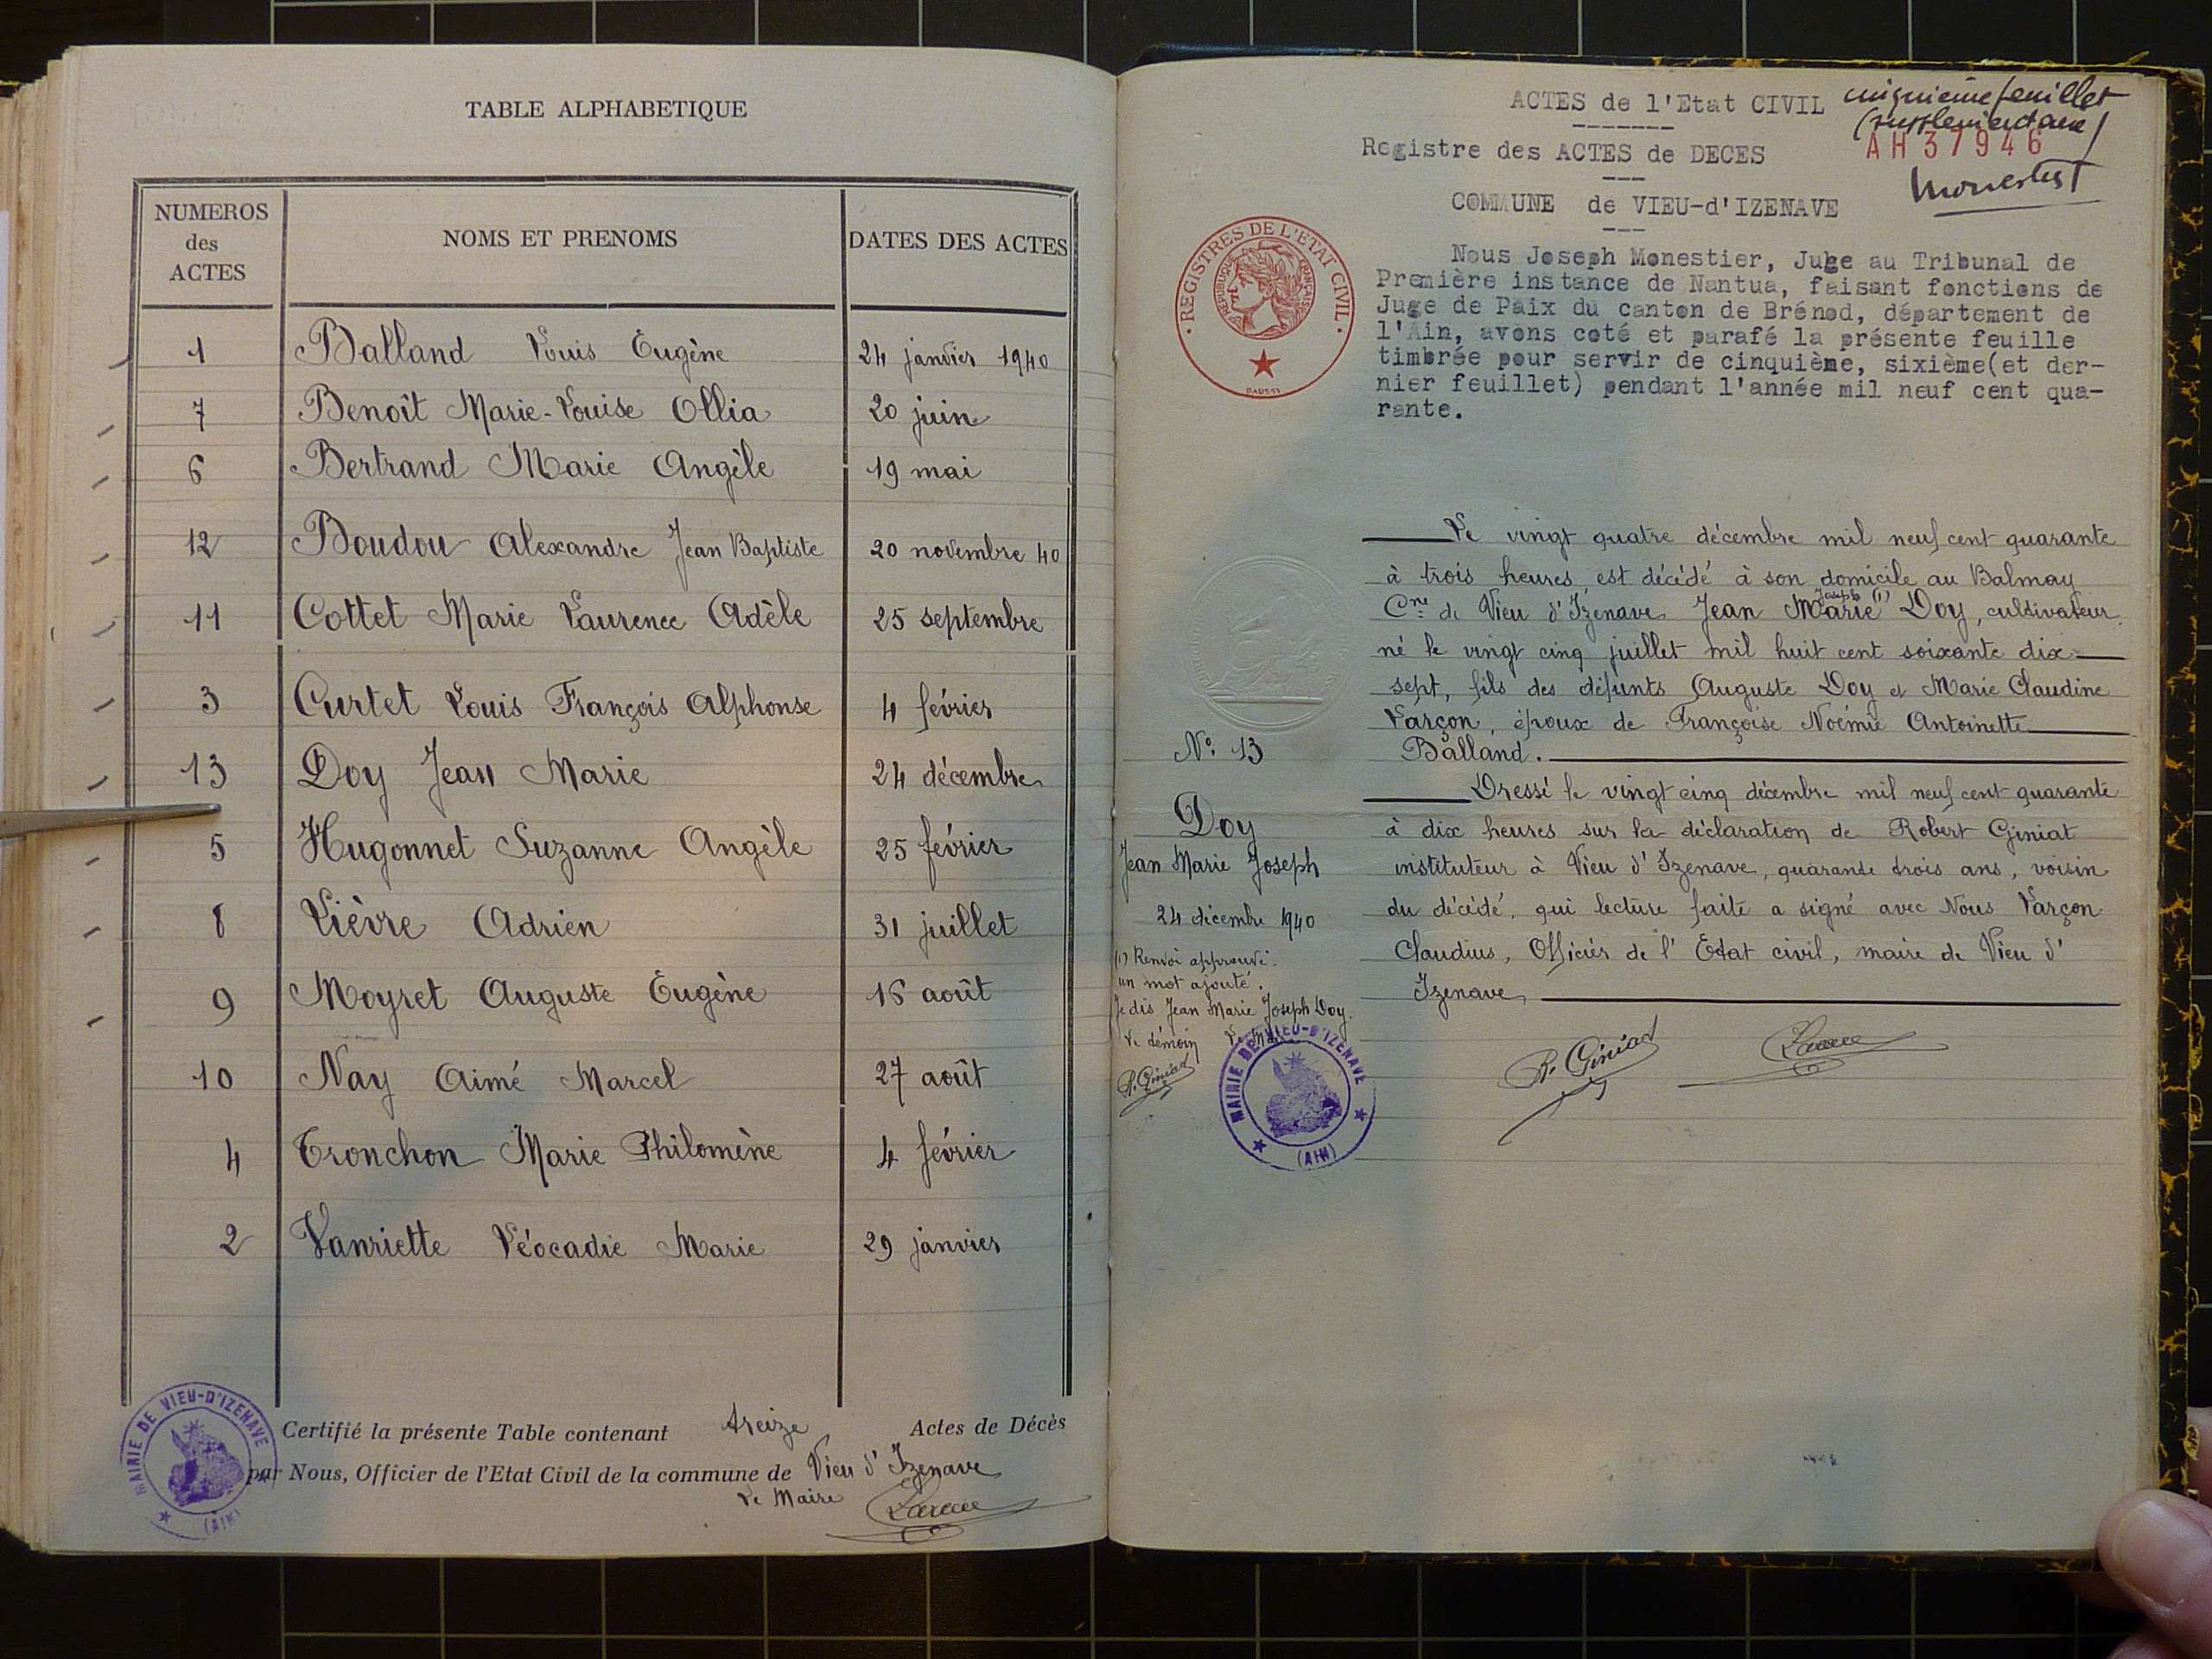 TABLE ALPHABETIQUE
NUMEROS des ACTES
NOMS ET PRENOMS
DATES DES ACTES
1 Balland Louis Eugène 24 janvier 1940
7 Benoît Marie-Louise Ollia 20 juin
6 Bertrand Marie Angèle 19 mai
12 Boudou Alexandre Jean Baptiste 20 novembre 40
11 Cottet Marie Laurence Adèle 25 septembre
3 Curtet Louis François Alphonse 4 février
13 Doy Jean Marie 24 décembre
5 Hugonnet Suzanne Angèle 25 février
8 Lièvre Adrien 31 juillet
9 Moyret Auguste Eugène 16 août
10 Nay Aimé Marcel 27 août
4 Tronchon Marie Philomène 4 février
2 Vanriette Léocadie Marie 29 janvier
Certifié la présente Table contenant treize Actes de Décès
par Nous, Officier de l'Etat Civil de la commune de Vieu d'Izenave
Le Maire
MAIRIE DE VIEU-D'IZENAVE
(AIN)
ACTES de l'Etat CIVIL
cinquième feuillet
(supplémentaire)
AH 37946
Registre des ACTES de DECES
COMMUNE de VIEU-d'IZENAVE
REGISTRES DE L'ETAT CIVIL
REPUBLIQUE FRANÇAISE
Nous Joseph Monestier, Juge au Tribunal de
Première instance de Nantua, faisant fonctions de
Juge de Paix du canton de Brénod, département de
l'Ain, avons coté et parafé la présente feuille
timbrée pour servir de cinquième, sixième(et der-
nier feuillet) pendant l'année mil neuf cent qua-
rante.
Le vingt quatre décembre mil neuf cent quarante
à trois heures, est décédé à son domicile au Balmay
Joseph (1)
Cne de Vieu d'Izenave Jean Marie Doy, cultivateur,
né le vingt cinq juillet mil huit cent soixante dix
sept, fils des défunts Auguste Doy et Marie Claudine
Varçon, époux de Françoise Noémie Antoinette
Balland.
Dressé le vingt cinq décembre mil neuf cent quarante
à dix heures sur la déclaration de Robert Giniat
instituteur à Vieu d'Izenave, quarante trois ans, voisin
du décédé, qui lecture faite a signé avec Nous Varçon
Claudius, Officier de l'Etat civil, maire de Vieu d'
Izenave,
R. Giniat
No 13
Doy
Jean Marie Joseph
24 décembre 1940
(1) Renvoi approuvé.
un mot ajouté.
Je dis Jean Marie Joseph Doy.
Le témoin Le Maire
R. Giniat
MAIRIE DE VIEU-D'IZENAVE
(AIN)